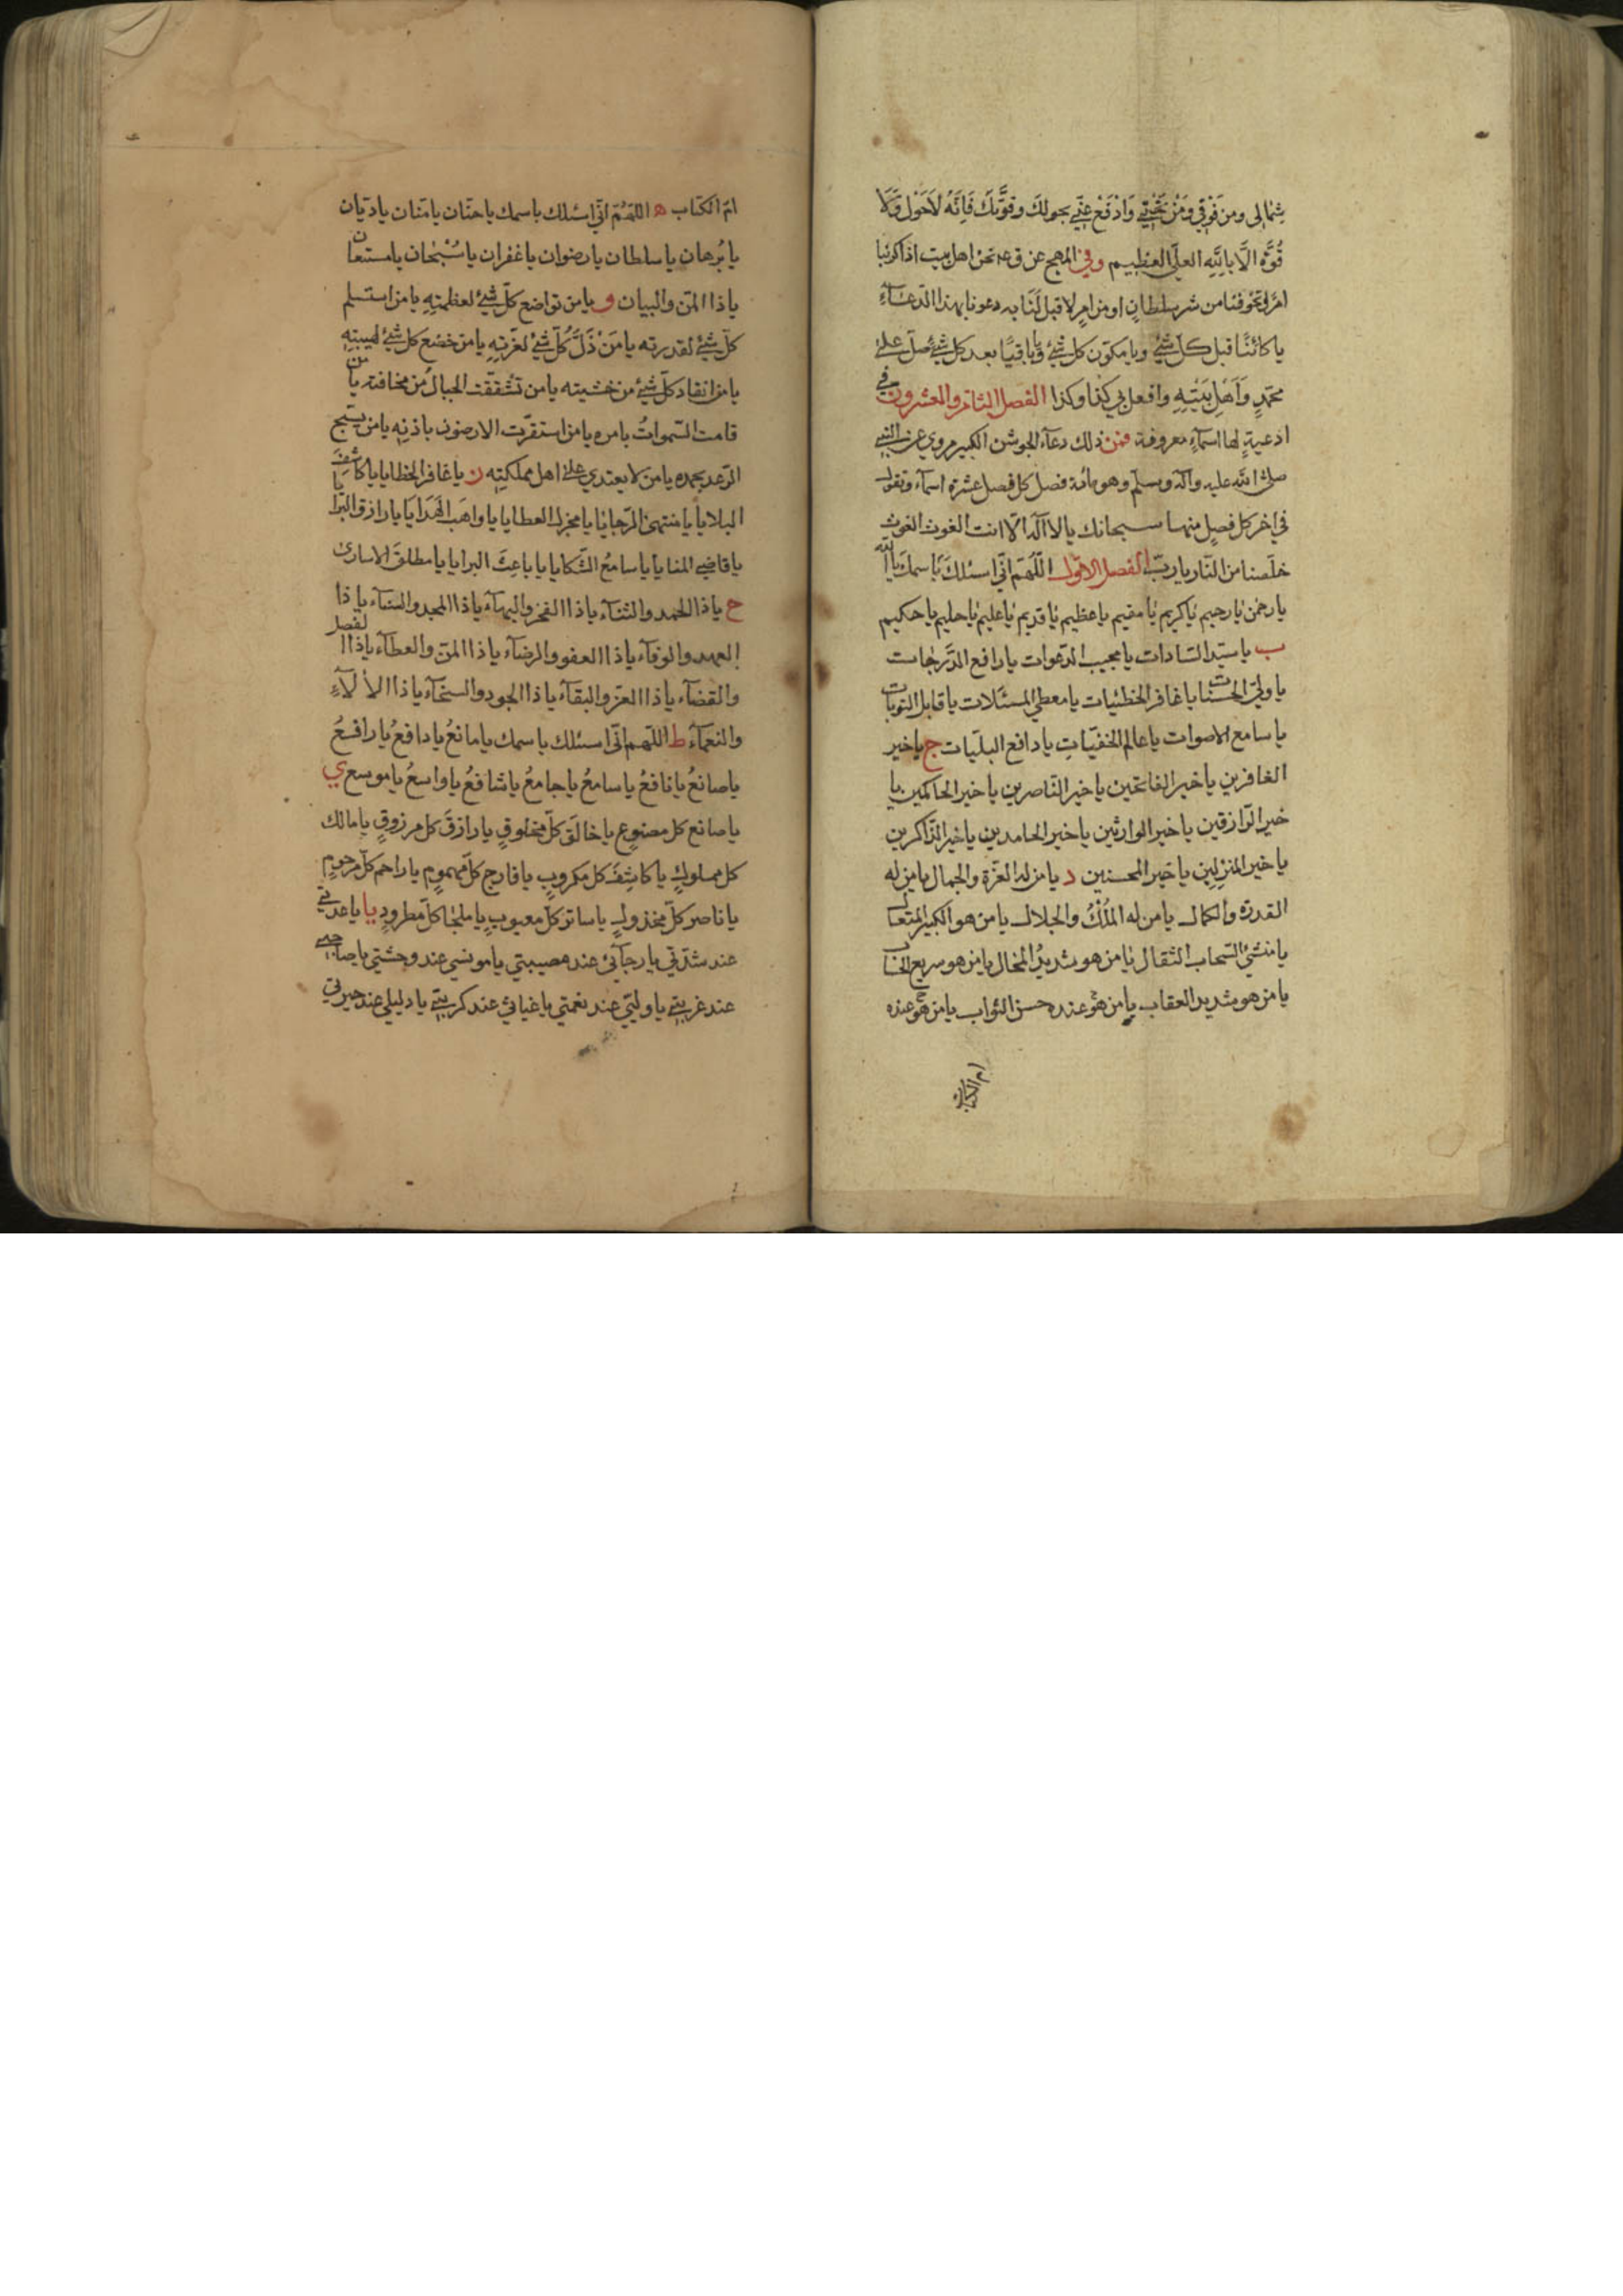 شِمَالِى ومن فَوْقِي وَمَنْ تَحْتِي وَادْفَعْ عَنِّي بحولكَ وقوَّتِكَ فَاِنَّهُ لَاحَوْلَ وَلَا
قُوَّةَ اِلَّا بِاللّٰهِ العليِّ العظيم وفي المهج عن ق ع نحن اهل بيت اذا كربنا
امرٌ او تخوفنا من شر سلطانٍ او من امرٍ لا قبل لَنَا به دعونا بهذا الدّعَآءِ
يا كائنًا قبل كلّ شيْءٍ ويا مكوّن كل شيْءٍ ويا باقيًا بعد كل شيْءٍ صلّ علىٰ
محمّدٍ وَاَهْلِ بَيْتِهِ وافعل بي كذا وكذا الفصل الثامن والعشرون في
ادعيةٍ لها اسمآءٍ معروفة فمن ذلك دعآء الجوشن الكبير مروي عن النبي
صلى اللّه عليه وآله وسلّم وهو مائة فصل كل فصل عشرة اسمآء وتقول
في اٰخر كل فصلٍ منها سبحانك يا لا اله الّا انت الغوث الغوث
خلّصنا من النّار يا ربّ الفصل الاوّل اللّهمّ انّي اسئلكَ بِاسمكَ يا اللّه
يا رحمٰن يا رحيم يا كريم يا مقيم يا عظيم يا قديم يا عليم يا حليم يا حكيم
ب يا سيّد السّادات يا مجيب الدّعوات يا رافع الدّرجات
يا وليّ الحسنات يا غافر الخطئيات يا معطي المسئلات يا قابل التوبات
يا سامع الاصوات يا عالم الخفيّاتِ يا دافع البليّات ج يا خير
الغافرين يا خير الفاتحين يا خير النّاصرين يا خير الحاكمين يا
خير الرّازقين يا خير الوارثين يا خير الحامدين يا خير الذّاكرين
يا خير المنزِلين يا خير المحسنين د يا من له العزّة والجمال يا من له
القدرة والكمال يا من له المُلْكُ والجلال يا من هو الكبير المتعال
يا منشئ السّحاب الثقال يا من هو شديدُ المحال يا من هو سريع الحساب
يا من هو شديد العقاب يا من هو عنده حسن الثواب يا من هو عنده
ام الكتاب
امّ الكتاب ه اللهُمّ انّي اسئلك باسمك يا حنّان يا منّان يا ديّان
يا بُرهان يا سلطان يا رضوان يا غفران يا سُبْحٰان يا مستعان
يا ذا المنّ والبيان و يا من تواضع كلّ شيْءٍ لعظمتِهِ يا من استسلم
كلّ شيْءٍ لقدرته يا مَنْ ذَلَّ كُلّ شيْءٍ لعزّتِهِ يا من خضع كل شيْءٍ لهيبتِهِ
يا من انقاد كلّ شيْءٍ من خشيته يا من تشقّقت الجبالُ من مخافته يا من
قامت السّمواتُ بامره يا من استقرّت الارضون باذنِهِ يا من يسبّح
الرّعد بحمده يا من لا يعتدي علىٰ اهل مملكتِهِ ز يا غافر الخطايا يا كاشفَ
البلايا يا منتهى الرّجايا يا مجزل العطايا يا واهَبَ الهَدَايَا يا رازق البرايا
يا قاضي المنايا يا سامعُ الشّكايا يا باعِثَ البرايا يا مطلقَ الاسارىٰ
ح يا ذا الحمد والثنآء يا ذا الفخر والبهآءِ يا ذا المجد والسنآء يا ذا
العهد والوفآء يا ذا العفو والرضآء يا ذا المنّ والعطآء يا ذا الفصل
والقضآء يا ذا العزّ والبقآءُ يا ذا الجود والسخآء يا ذا الألآءِ
والنعمآءِ ط اللّهم انّي اسئلك باسمك يا مانعُ يا دافعُ يا رافعُ
يا صانعُ يا نافعُ يا سامعُ يا جامعُ يا شافعُ يا واسعُ يا موسع ي
يا صانع كل مصنوعٍ يا خالقَ كلّ مخلوقٍ يا رازقَ كل مرزوقٍ يا مالك
كل مملوكٍ يا كاشِفَ كل مكروبٍ يا فارج كلّ مهمومٍ يا راحم كلّ مرحومٍ
يا ناصر كلّ مخذولٍ يا ساتر كلّ معيوبٍ يا ملجأ كلّ مطرودٍ يا يا عدتي
عند شدّتي يا رجآئي عند مصيبتي يا مونسي عند وحشتي يا صاحبي
عند غربتي يا وليّي عند نعمتي يا غياثي عند كربتي يا دليلي عند حيرتي